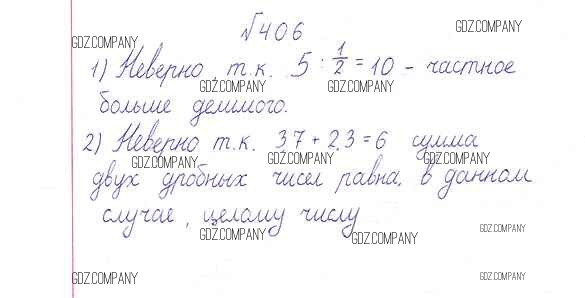 №406
GDZ.COMPANY
GDZ.COMPANY
1) Неверно т.к. 5 : 1/2 = 10 - частное
GDZ.COMPANY GDZ.COMPANY
больше делимого.
2) Неверно т.к. 3,7 + 2,3 = 6 сумма
GDZ.COMPANY GDZ.COMPANY GDZ.COMPANY
двух дробных чисел равна, в данном
случае, целому числу
GDZ.COMPANY GDZ.COMPANY GDZ.COMPANY
GDZ.COMPANY GDZ.COMPANY